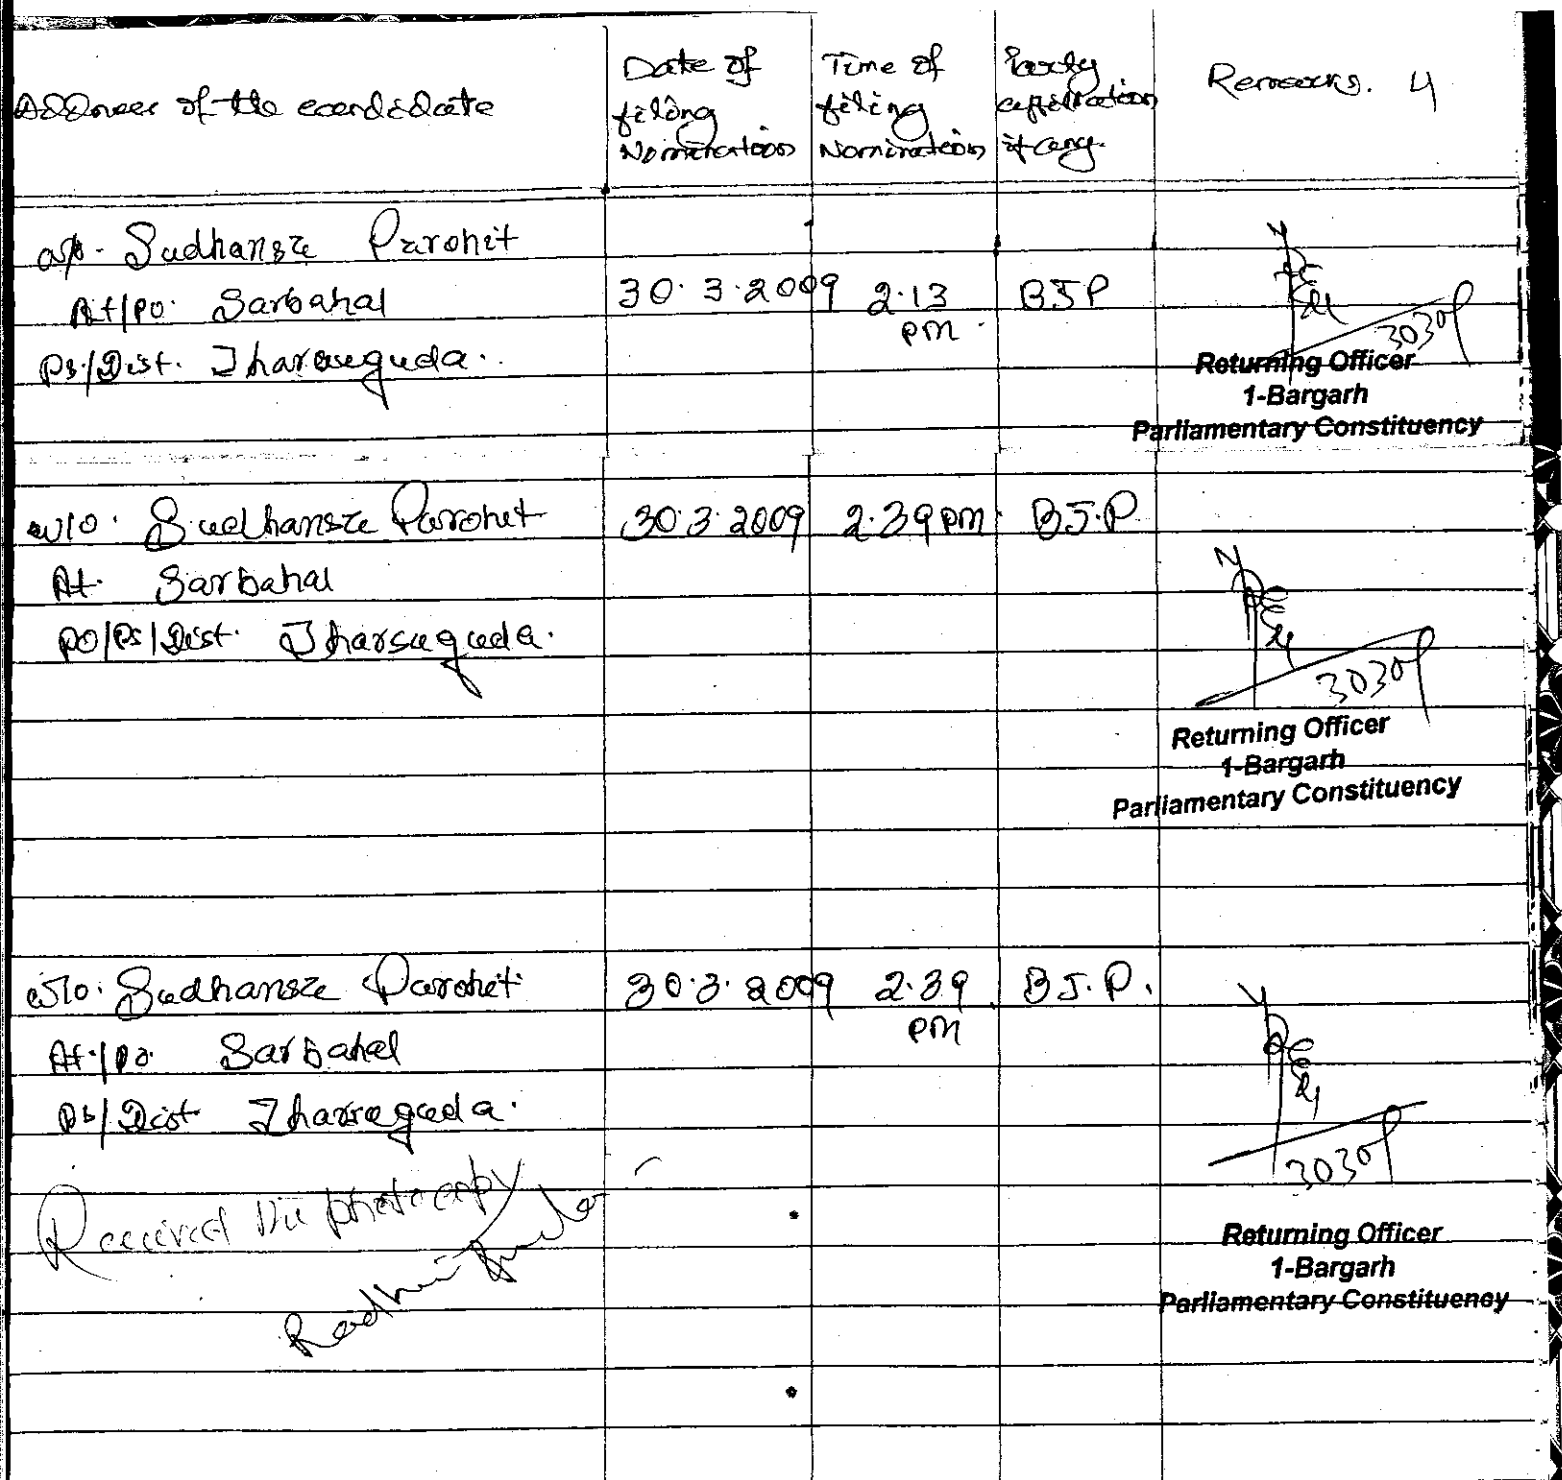 Address of the candidate
Date of filing Nomination
Time of filing Nomination
Party affiliation if any.
Remarks. 4
w/o. Sudhansu Purohit
At/po. Sarbahal
Ps./Dist. Jharsuguda.
30.3.2009
2.13 pm.
BJP
30309
Returning Officer
1-Bargarh
Parliamentary Constituency
w/o. Sudhansu Purohit
30.3.2009
2.39 pm.
B.J.P
At. Sarbahal
PO/Ps/Dist. Jharsuguda.
30309
Returning Officer
1-Bargarh
Parliamentary Constituency
w/o. Sudhansu Purohit
30.3.2009
2.39 pm
B.J.P.
At./po. Sarbahal
Ps/Dist Jharsuguda.
30309
Received the photocopy
Returning Officer
1-Bargarh
Parliamentary Constituency